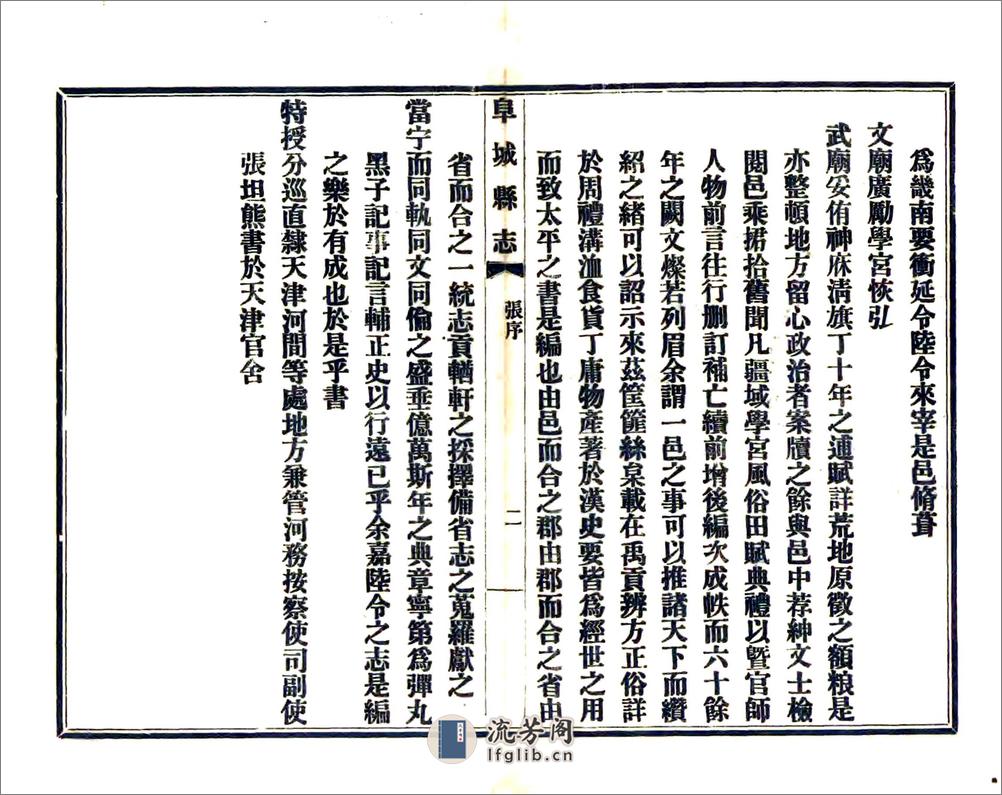 爲畿南要衝延令陸令來宰是邑脩葺
文廟廣勵學宮恢弘
武廟妥侑神庥淸旗丁十年之逋賦詳荒地原徵之額粮是
亦整頓地方留心政治者案牘之餘與邑中荐紳文士檢
閱邑乘捃拾舊聞凡疆域學宮風俗田賦典禮以曁官師
人物前言往行删訂補亡續前增後編次成帙而六十餘
年之闕文燦若列眉余謂一邑之事可以推諸天下而纘
紹之緒可以詔示來茲筐篚絲枲載在禹貢辨方正俗詳
於周禮溝洫食貨丁庸物產著於漢史要皆爲經世之用
而致太平之書是編也由邑而合之郡由郡而合之省由
阜城縣志
張序
二
省而合之一統志貢輶軒之採擇備省志之蒐羅獻之
當宁而同軌同文同倫之盛垂億萬斯年之典章寧第爲彈丸
黑子記事記言輔正史以行遠已乎余嘉陸令之志是編
之樂於有成也於是乎書
特授分巡直隸天津河間等處地方兼管河務按察使司副使
張坦熊書於天津官舍
流芳阁
lfglib.cn